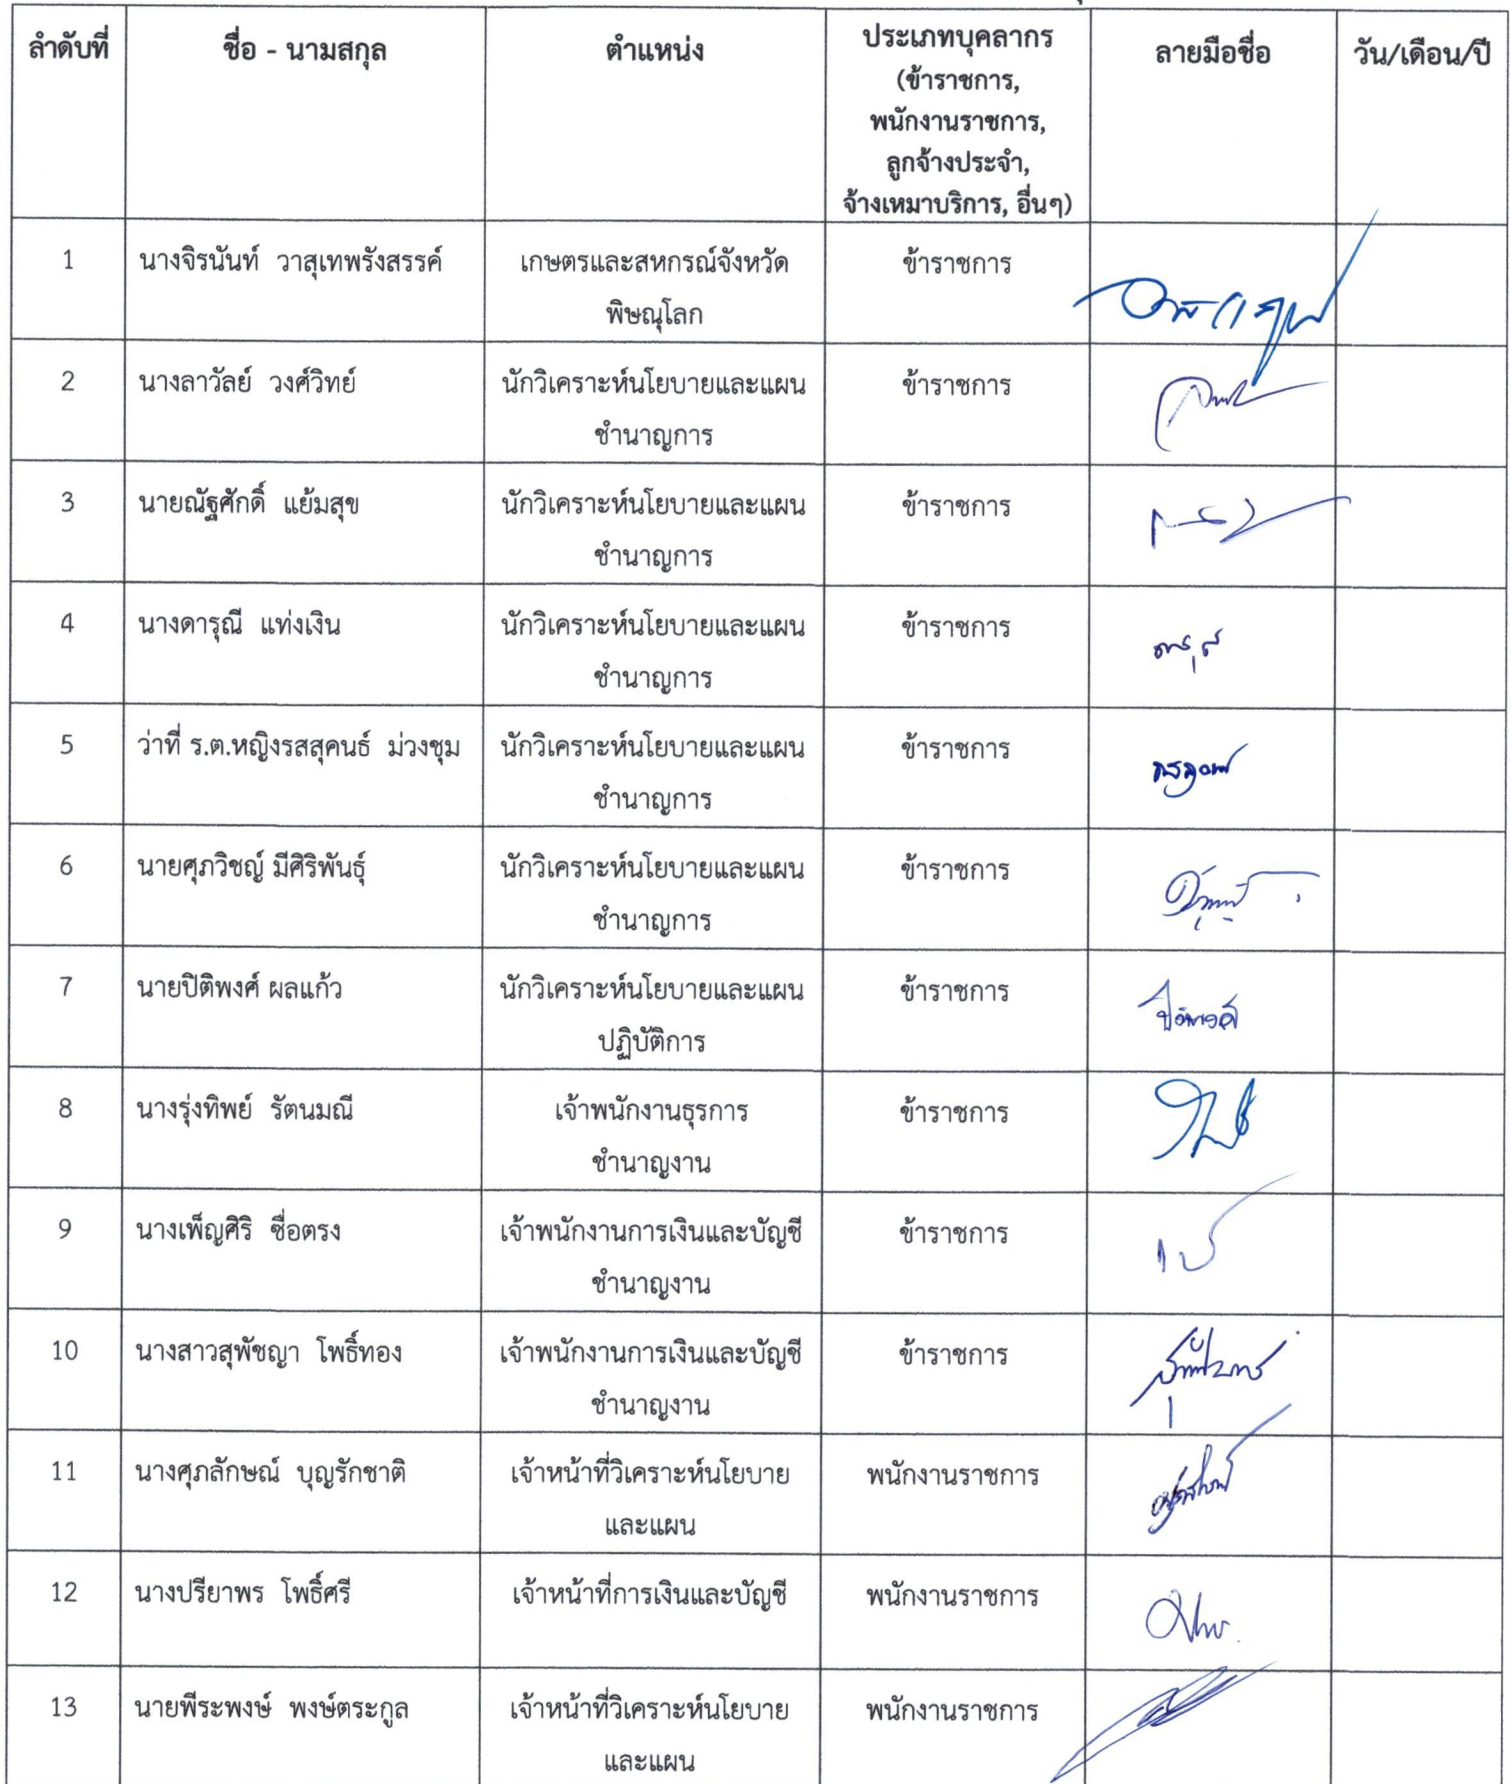 ลำดับที่ ชื่อ - นามสกุล ตำแหน่ง ประเภทบุคลากร ลายมือชื่อ วัน/เดือน/ปี
(ข้าราชการ,
พนักงานราชการ,
ลูกจ้างประจำ,
จ้างเหมาบริการ, อื่นๆ)
1 นางจิรนันท์ วาสุเทพรังสรรค์ เกษตรและสหกรณ์จังหวัด ข้าราชการ
พิษณุโลก
2 นางลาวัลย์ วงศ์วิทย์ นักวิเคราะห์นโยบายและแผน ข้าราชการ
ชำนาญการ
3 นายณัฐศักดิ์ แย้มสุข นักวิเคราะห์นโยบายและแผน ข้าราชการ
ชำนาญการ
4 นางดารุณี แท่งเงิน นักวิเคราะห์นโยบายและแผน ข้าราชการ
ชำนาญการ
5 ว่าที่ ร.ต.หญิงรสสุคนธ์ ม่วงชุม นักวิเคราะห์นโยบายและแผน ข้าราชการ
ชำนาญการ
6 นายศุภวิชญ์ มีศิริพันธุ์ นักวิเคราะห์นโยบายและแผน ข้าราชการ
ชำนาญการ
7 นายปิติพงศ์ ผลแก้ว นักวิเคราะห์นโยบายและแผน ข้าราชการ
ปฏิบัติการ
8 นางรุ่งทิพย์ รัตนมณี เจ้าพนักงานธุรการ ข้าราชการ
ชำนาญงาน
9 นางเพ็ญศิริ ซื่อตรง เจ้าพนักงานการเงินและบัญชี ข้าราชการ
ชำนาญงาน
10 นางสาวสุพัชญา โพธิ์ทอง เจ้าพนักงานการเงินและบัญชี ข้าราชการ
ชำนาญงาน
11 นางศุภลักษณ์ บุญรักชาติ เจ้าหน้าที่วิเคราะห์นโยบาย พนักงานราชการ
และแผน
12 นางปรียาพร โพธิ์ศรี เจ้าหน้าที่การเงินและบัญชี พนักงานราชการ
13 นายพีระพงษ์ พงษ์ตระกูล เจ้าหน้าที่วิเคราะห์นโยบาย พนักงานราชการ
และแผน